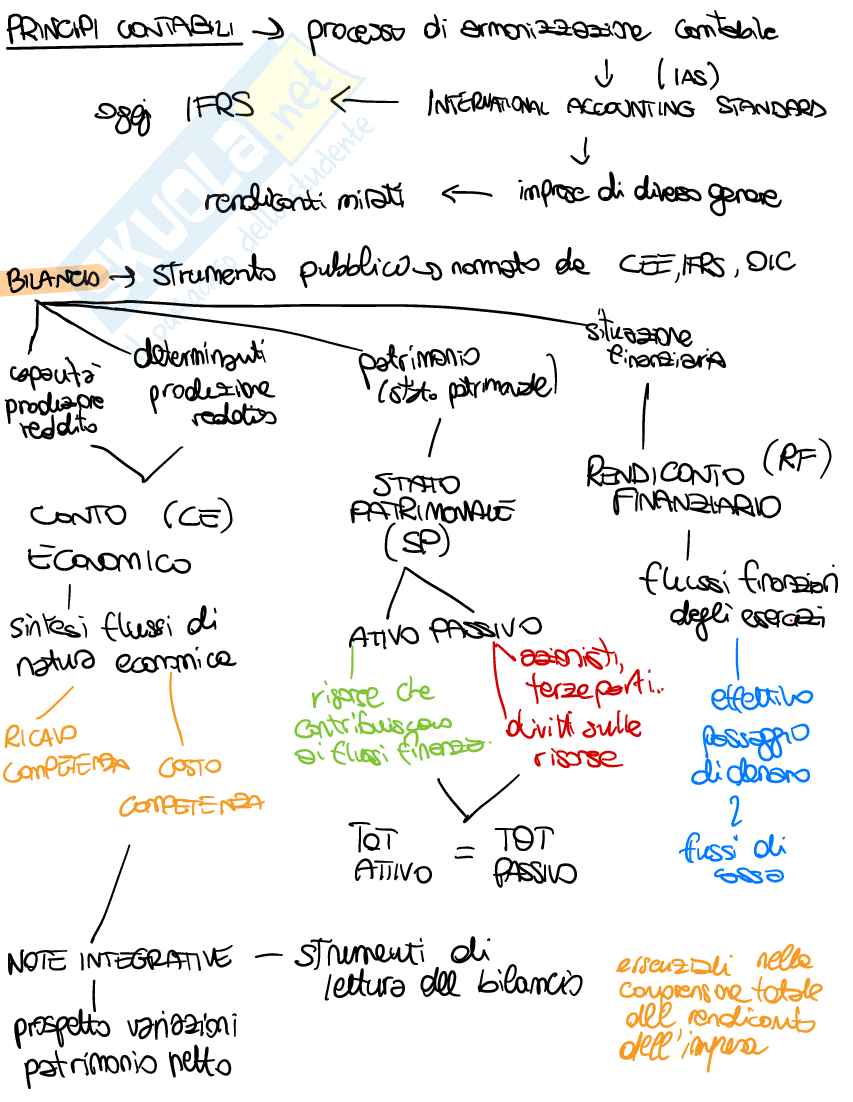 PRINCIPI CONTABILI → processo di armonizzazione contabile
(IAS)
oggi IFRS ← INTERNATIONAL ACCOUNTING STANDARD
rendiconti mirati ← imprese di diverso genere
BILANCIO → strumento pubblico → normato da CEE, IFRS, OIC
capacità
produrre
reddito
determinanti
produzione
reddito
patrimonio
(stato patrimoniale)
situazione
finanziaria
CONTO (CE)
ECONOMICO
STATO
PATRIMONIALE
(SP)
RENDICONTO (RF)
FINANZIARIO
sintesi flussi di
natura economica
ATIVO PASSIVO
flussi finanziari
degli esercizi
RICAVO
COMPETENZA
COSTO
COMPETENZA
risorse che
contribuiscono
ai flussi finanza.
azionisti,
terze parti..
diritti sulle
risorse
effettivo
passaggio
di denaro
flussi di
cassa
TOT
ATTIVO
=
TOT
PASSIVO
NOTE INTEGRATIVE — strumenti di
lettura del bilancio
prospetto variazioni
patrimonio netto
essenziali nella
comprensione totale
del rendiconto
dell'impresa
skuola.net